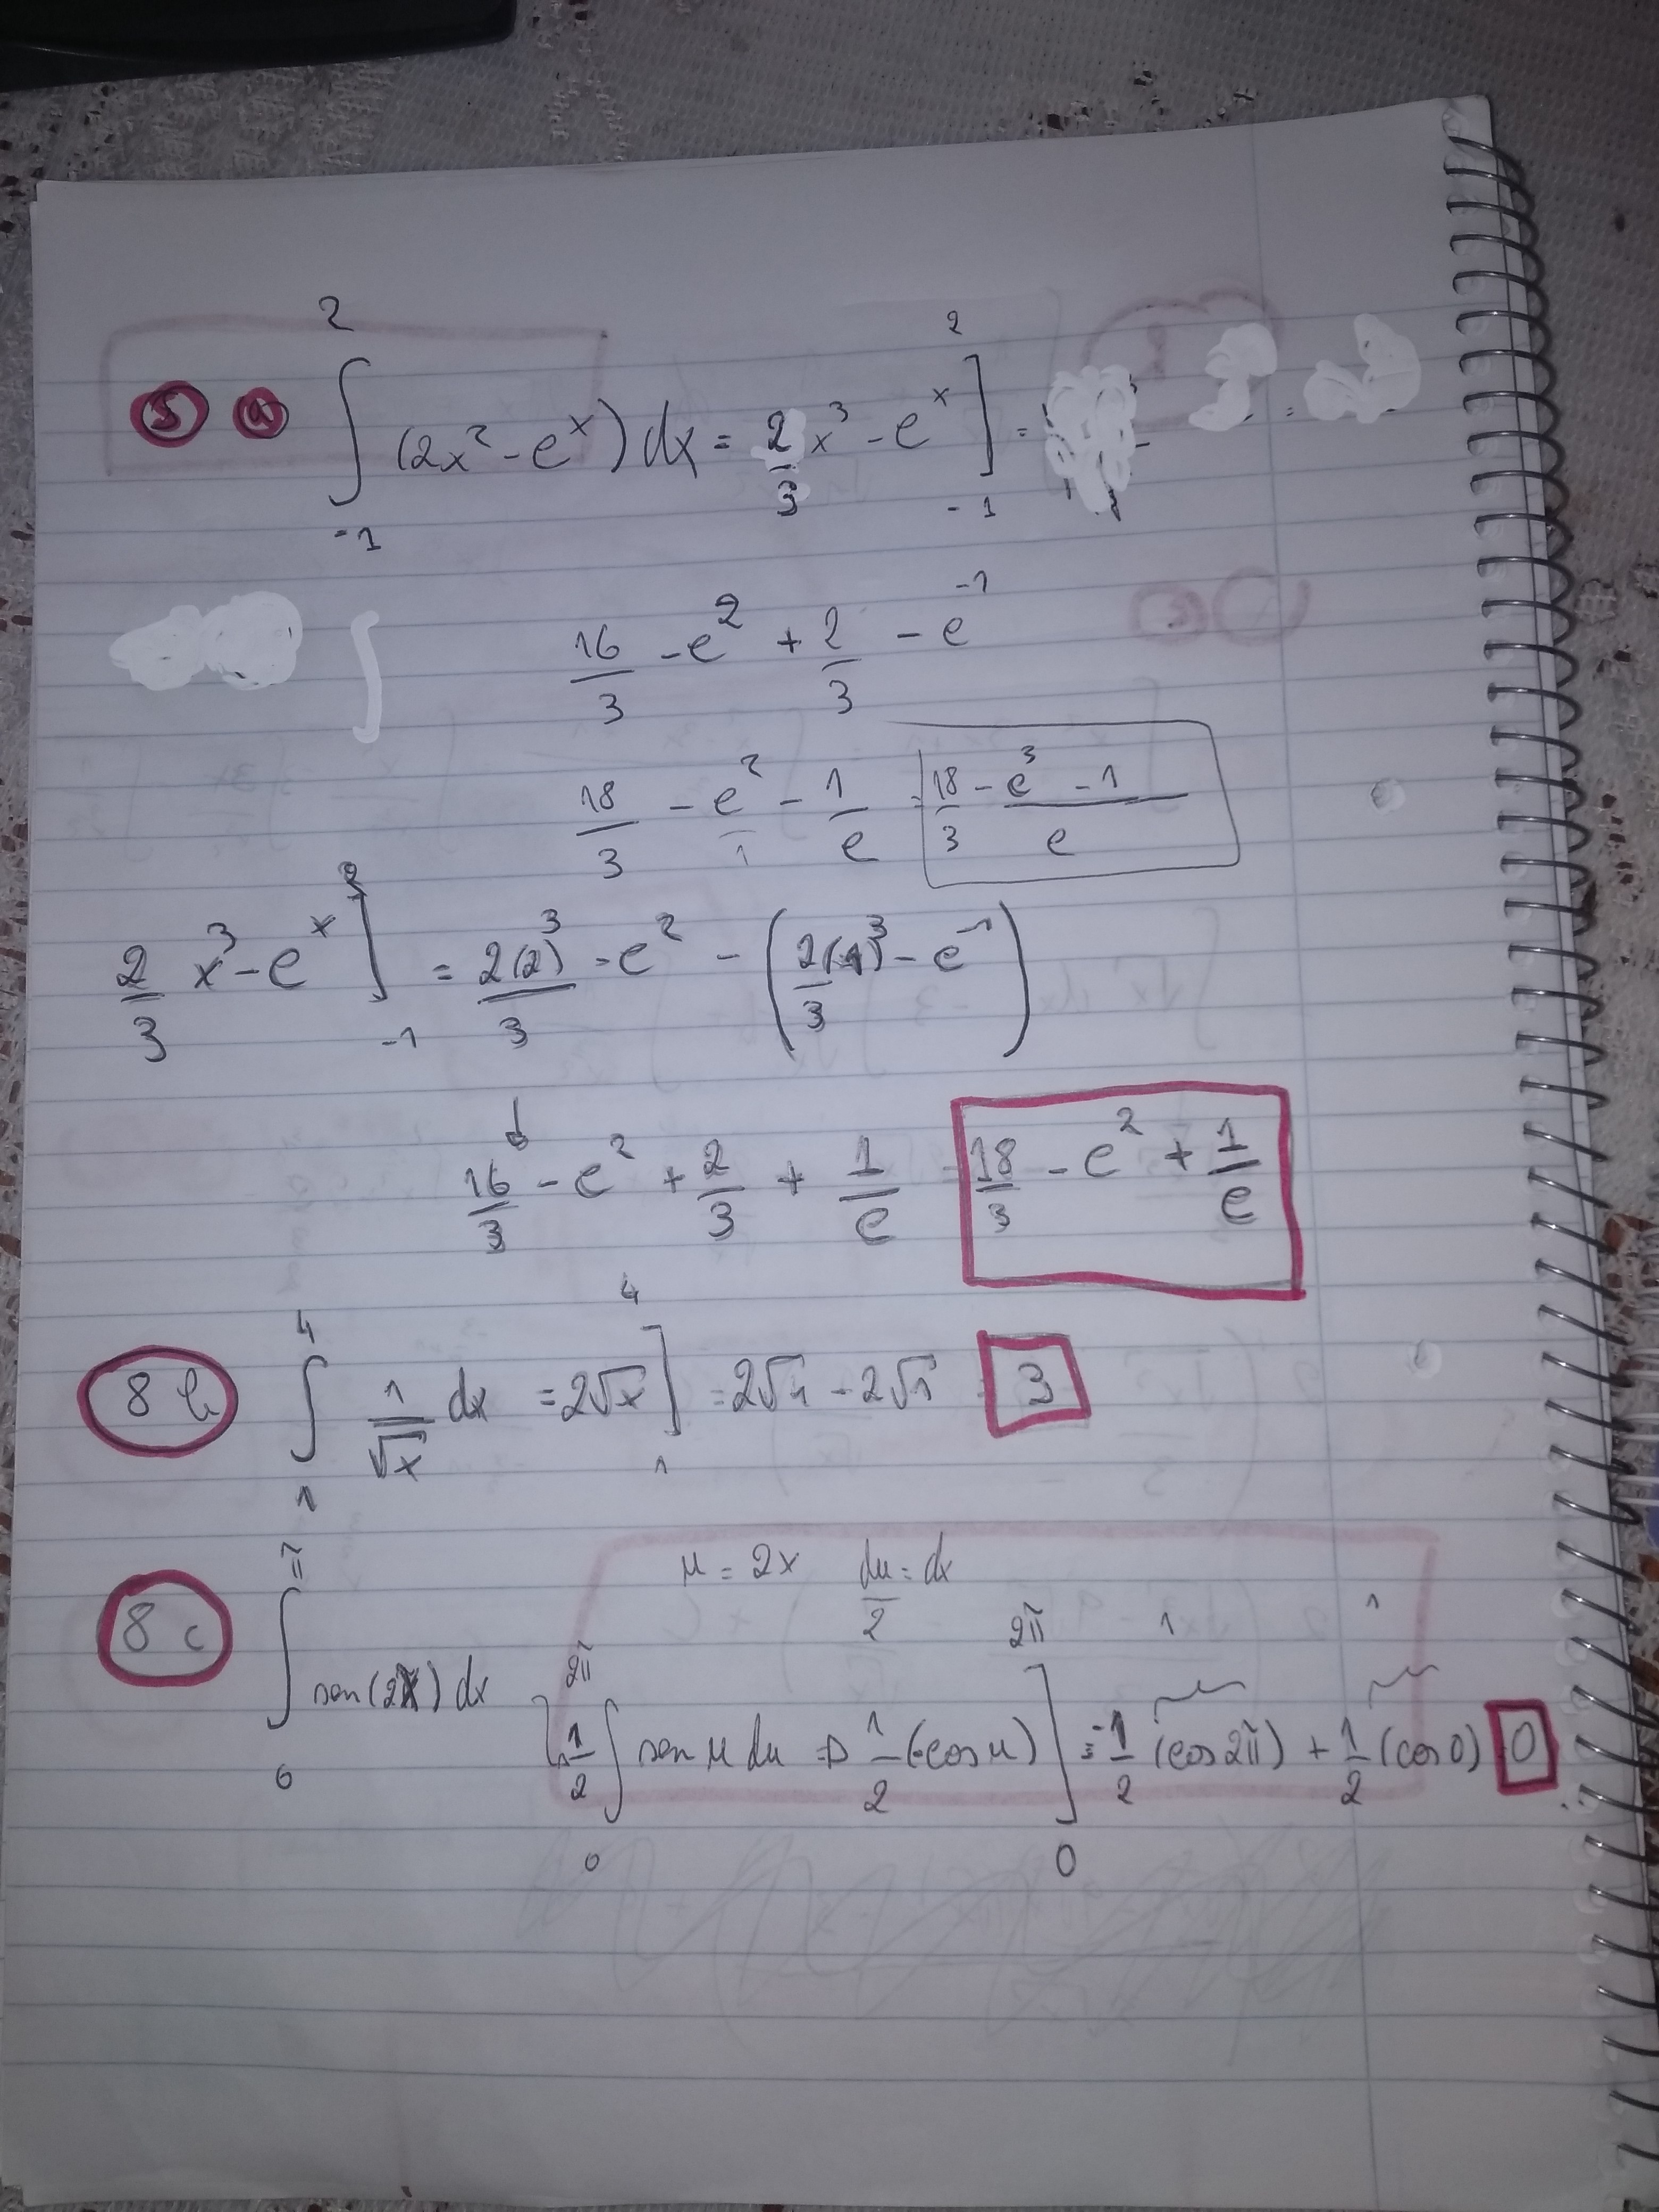 5 a ∫_{-1}^{2} (2x² - eˣ) dx = 2/3 x³ - eˣ ]_{-1}^{2} =
16/3 - e² + 2/3 - e⁻¹
18/3 - e²/1 - 1/e = 18/3 - e³ - 1/e
2/3 x³ - eˣ ]_{-1}^{2} = 2(2)³/3 - e² - (2(-1)³/3 - e⁻¹)
↓
16/3 - e² + 2/3 + 1/e = 18/3 - e² + 1/e
8 b ∫_{1}^{4} 1/√x dx = 2√x ]_{1}^{4} = 2√4 - 2√1 3
μ = 2x du/2 = dx
8 c ∫_{0}^{π} sen(2x) dx 1/2 ∫_{0}^{2π} sen μ du ⇒ 1/2 (-cos u) ]_{0}^{2π} = -1/2 (cos 2π) + 1/2 (cos 0) 0
1 1